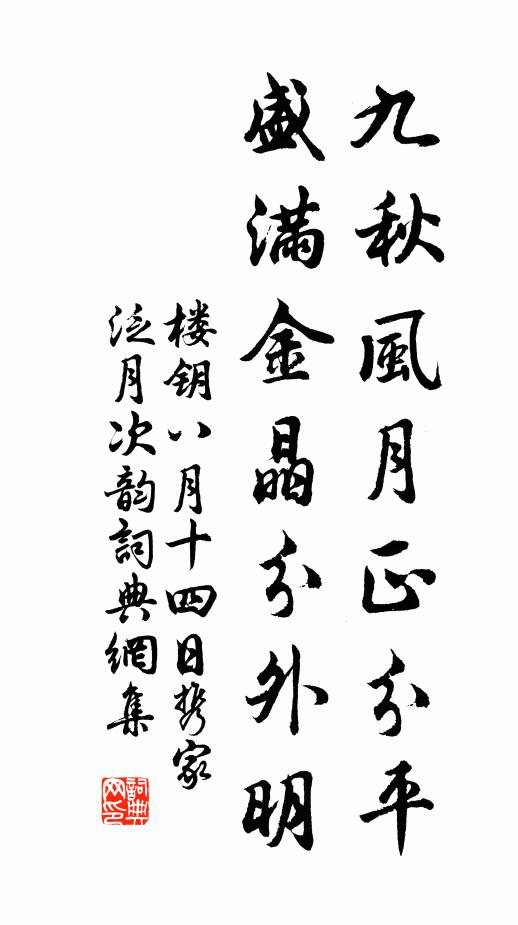 九秋風月正分平
盛滿金晶分外明
楼钥八月十四日携家
泛月次韵詞典網集
詞典网印